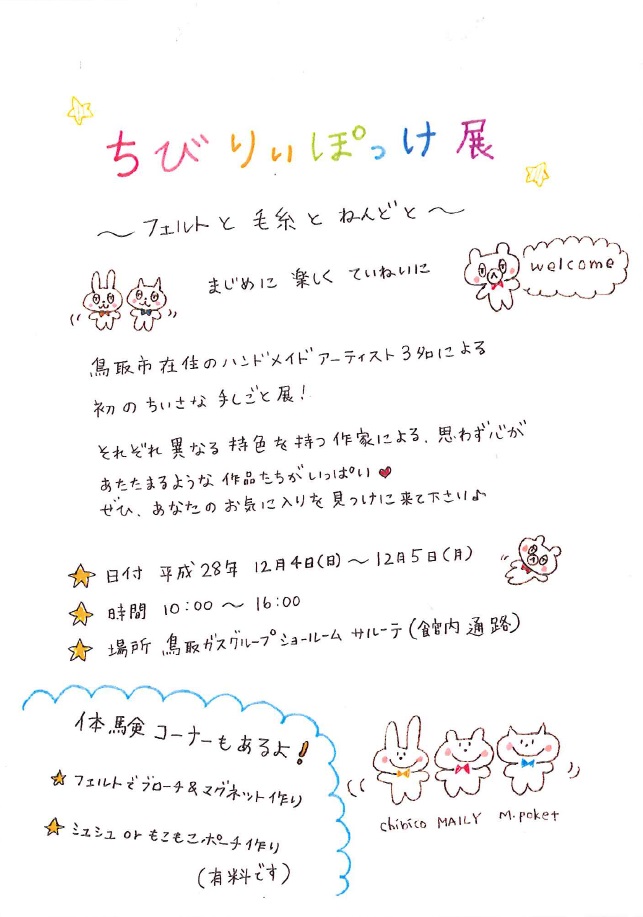 ちびりぃぽっけ展
〜フェルトと毛糸とねんどと〜
まじめに 楽しく ていねいに
welcome
鳥取市在住のハンドメイドアーティスト3名による
初のちいさな手しごと展!
それぞれ異なる特色を持つ作家による、思わず心が
あたたまるような作品たちがいっぱい♥
ぜひ、あなたのお気に入りを見つけに来て下さい♪
★日付 平成28年 12月4日(日)〜12月5日(月)
★時間 10:00〜16:00
★場所 鳥取ガスグループショールーム サルーテ(館内通路)
体験コーナーもあるよ!
★フェルトでブローチ&マグネット作り
★シュシュorもこもこポーチ作り
(有料です)
chibico MAILY M.poket